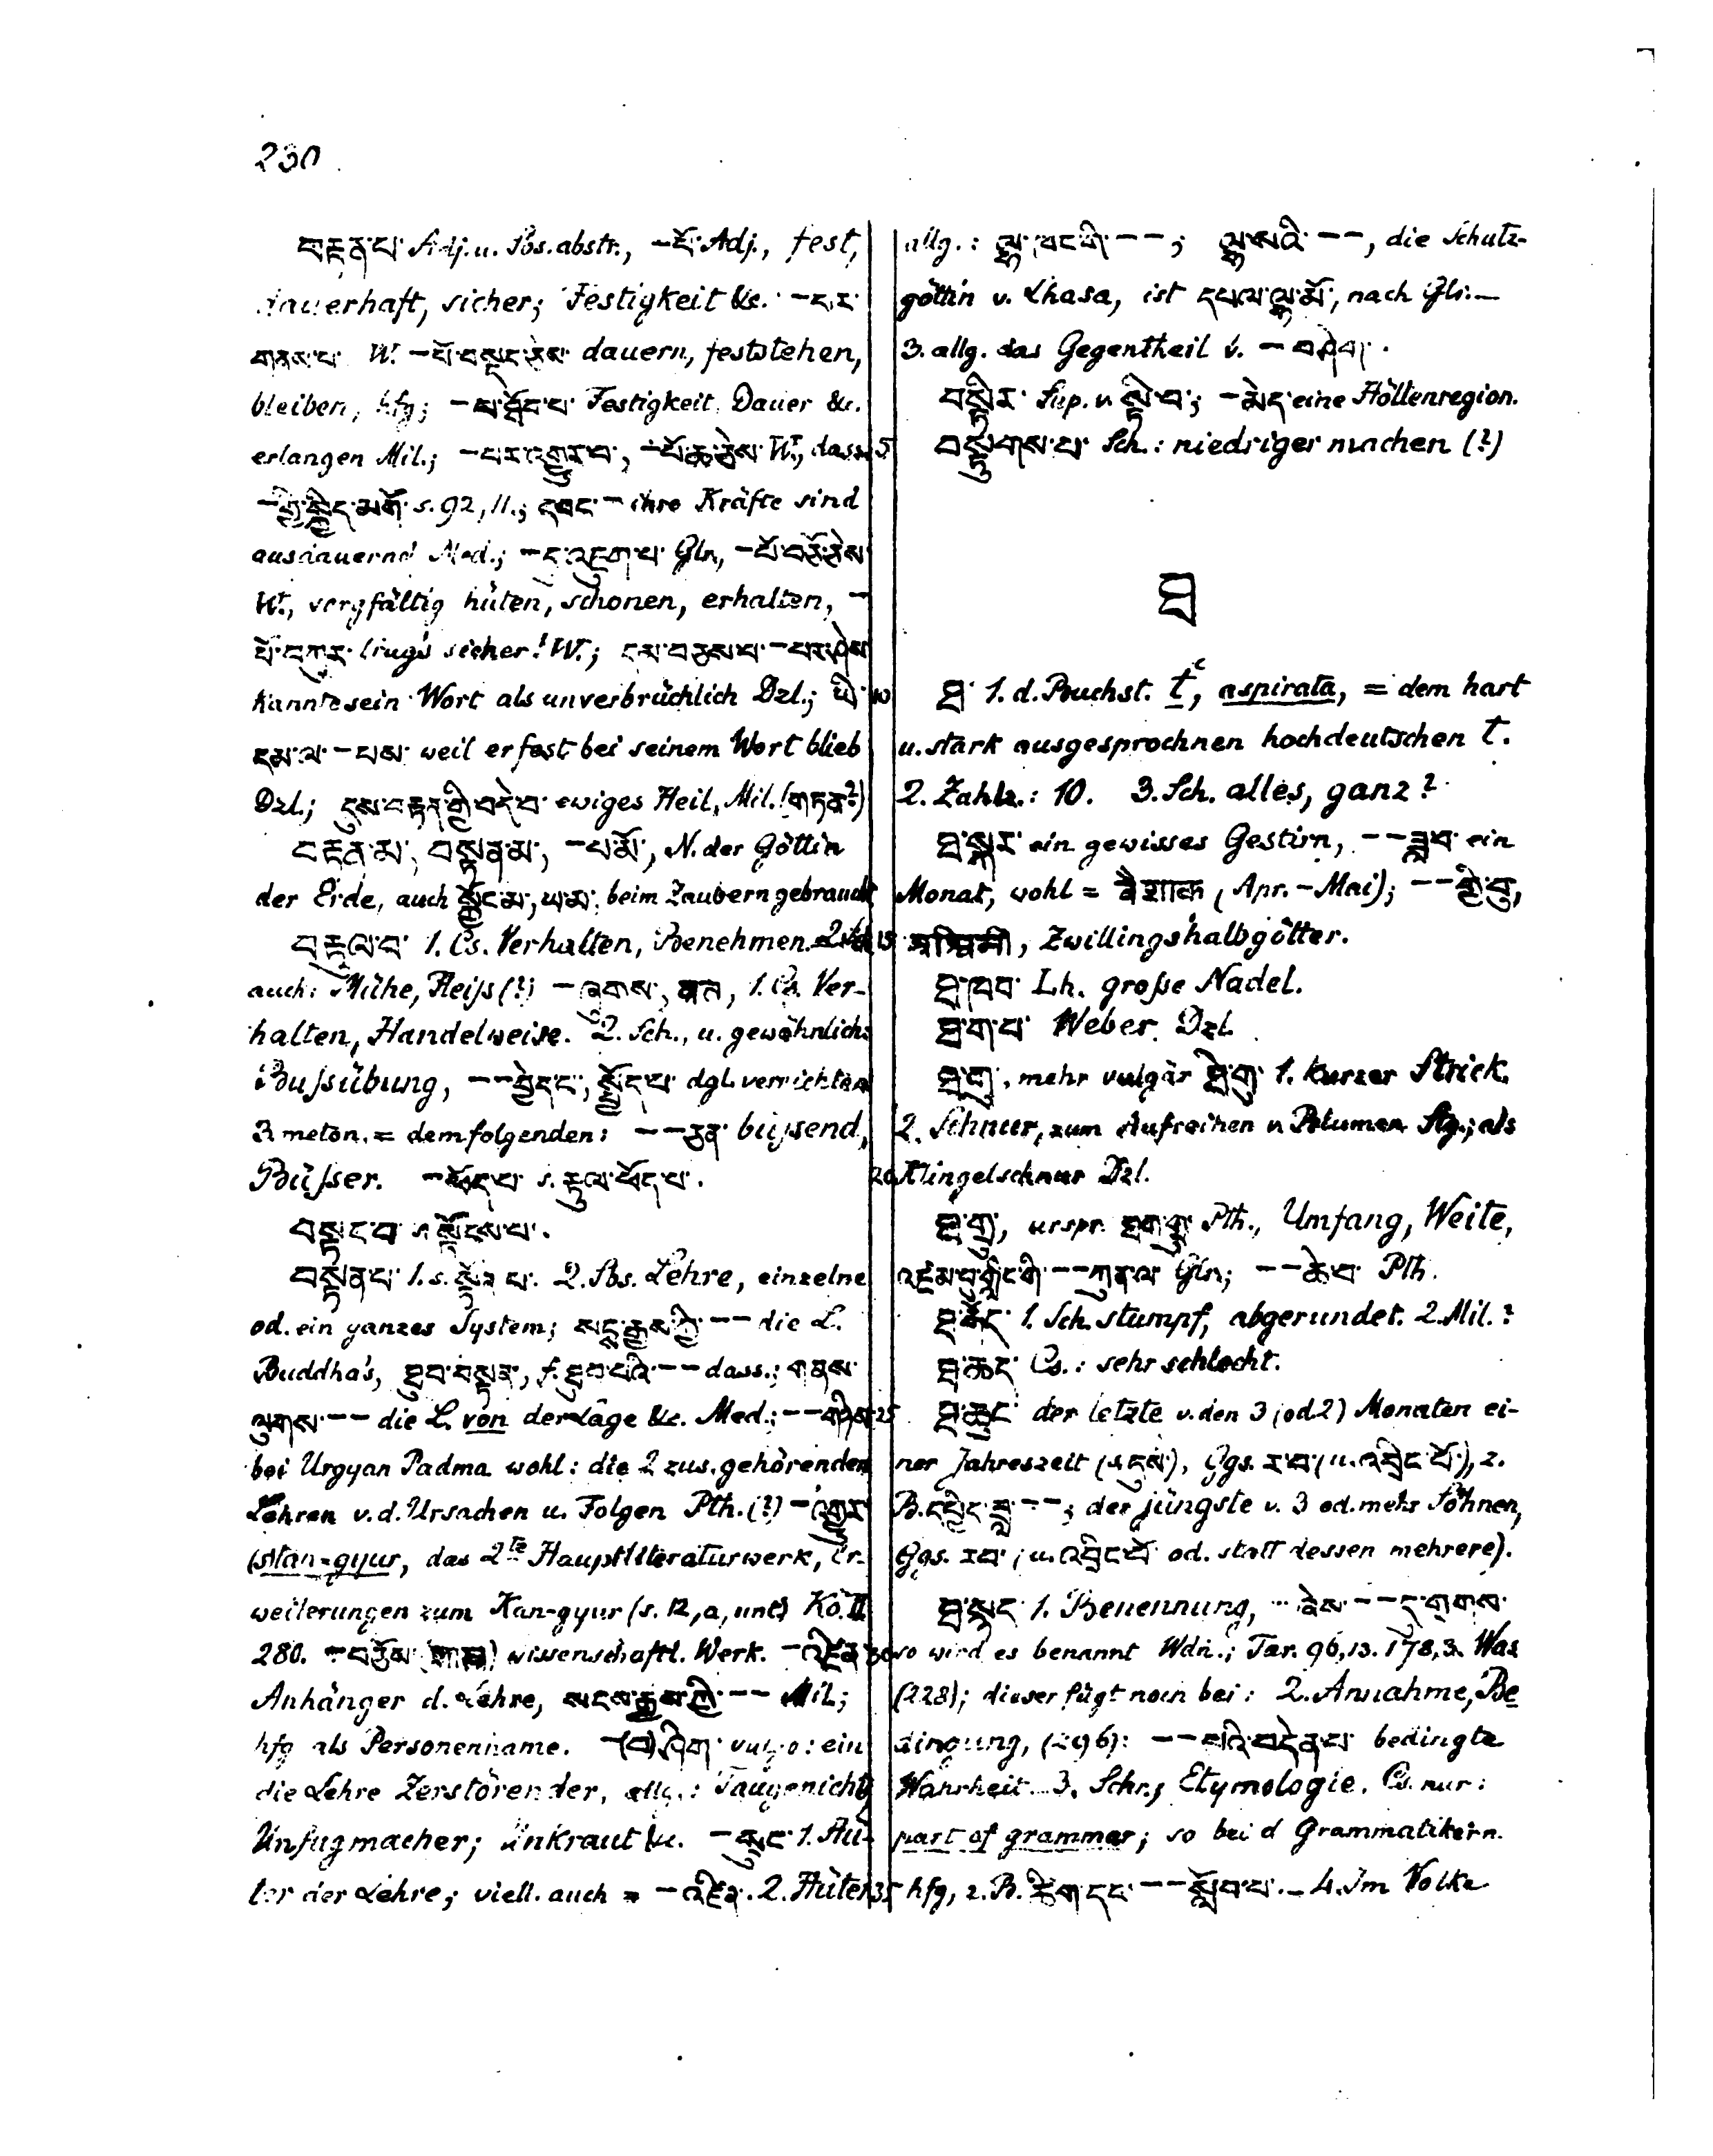 230
བརྟན་པ་ Adj. u. Sbs. abstr., –པོ་ Adj., fest,
dauerhaft, sicher; Festigkeit &c. –པར་
གནས་པ་ W. –པོ་བསྡད་ཅེས་ dauern, feststehen,
bleiben, hfg; –པ་ཐོབ་པ་ Festigkeit, Dauer &c.
erlangen Mil.; –པར་འགྱུར་བ་, –པོ་ཆ་ཅེས་ W., dass.
s. 92, 11.; དབང་ – ihre Kräfte sind
ausdauernd Med.; –དུ་འཇུག་པ་ Glr,
W., sorgfältig hüten, schonen, erhalten, –
sicher! W.; དམ་བཅས་པ་ –པར་ཤེས་
kannte sein Wort als unverbrüchlich Dzl.; ཡི་
དམ་ལ་ –པས་ weil er fest bei seinem Wort blieb
Dzl.; དུས་བརྟན་གྱི་བདེ་བ་ ewiges Heil, Mil. (གཏན?)
བརྟན་མ་, བསྟན་མ་, –པ་མོ་, N. der Göttin
der Erde, auch སྐྱོང་མ་, ཡ་མ་, beim Zaubern gebraucht
བརྟུལ་བ་ 1. Cs. Verhalten, Benehmen. 2.
auch: Mühe, Fleiß (?) –ཞུགས་, 1. Cs. Ver-
halten, Handelweise. 2. Sch., u. gewöhnlich:
Bußübung, ––བྱེད་པ་, སྤྱོད་པ་ dgl. verrichten
3. meton. = dem folgenden: ––ཅན་ büßend,
Büßer. –ཕོད་པ་ s. རྟུལ་ཕོད་པ་.
བསྟང་བ་ s. སྟོངས་པ་.
བསྟན་པ་ 1. s. སྟོན་པ་. 2. Sbs. Lehre, einzelne
od. ein ganzes System; སངས་རྒྱས་ཀྱི་ –– die L.
Buddha's, ཐུབ་བསྟན་, f. ཐུབ་པའི་ –– dass.; གནས་
ལུགས་ –– die L. von der Lage &c. Med.; ––གཉིས་
bei Urgyan Padma wohl: die 2 zus. gehörenden
Lehren v. d. Ursachen u. Folgen Pth. (?) –འགྱུར་
(s)tan-gyur, das 2te Hauptliteraturwerk, Er-
weiterungen zum Kan-gyur (s. 12, a, unt.) Kö. II
280. –བཅོས་ wissenschaftl. Werk. –འཛིན་
Anhänger d. Lehre, སངས་རྒྱས་ཀྱི་ –– Mil.;
hfg als Personenname. –(བ)ཤིག་ vulgo: ein
die Lehre Zerstörender, allg.: Taugenichts
Unfugmacher; Unkraut &c. –སྲུང་ 1. Hü-
ter der Lehre; viell. auch = –འཛིན་. 2. Hüter
allg.: ལྷ་ཁང་གི་ ––; ལྷ་སའི་ ––, die Schutz-
göttin v. Lhasa, ist དཔལ་ལྷ་མོ་, nach Glr.–
3. allg. das Gegentheil v. –བཤིག་.
བསྟིར་ Sup. v. སྟེ་བ་; –མེད་ eine Höllenregion.
5 བསྟུགས་པ་ Sch.: niedriger machen (?)
ཐ
10 ཐ་ 1. d. Buchst. tʿ, aspirata, = dem hart
u. stark ausgesprochnen hochdeutschen t.
2. Zahlz.: 10. 3. Sch. alles, ganz?
ཐ་སྐར་ ein gewisses Gestirn, ––ཟླ་བ་ ein
Monat, wohl = वैशाक (Apr.–Mai); ––གྱི་བུ་,
15 Zwillingshalbgötter.
ཐ་ཁབ་ Lh. große Nadel.
ཐ་ག་པ་ Weber. Dzl.
ཐ་གུ་, mehr vulgär ཐེ་གུ་ 1. kurzer Strick.
2. Schnur, zum Aufreihen v. Blumen Stg.; als
20 Klingelschnur Dzl.
ཐ་གྲུ་, urspr. ཐག་གྲུ་ Pth., Umfang, Weite,
འཛམ་བུ་གླིང་གི་ ––ཀུན་ལ་ Glr; ––ཆེ་བ་ Pth.
1. Sch. stumpf, abgerundet. 2. Mil.?
ཐ་ཆད་ Cs.: sehr schlecht.
25 ཐ་ཆུང་ der letzte v. den 3 (od. 2) Monaten ei-
ner Jahreszeit (s. དུས་), Ggs. ར་བ་ (u. འབྲིང་པོ་), z.
B. དཔྱིད་ཟླ་ ––; der jüngste v. 3 od. mehr Söhnen,
Ggs. རབ་ (u. འབྲིང་པོ་ od. statt dessen mehrere).
ཐ་སྙད་ 1. Benennung, ཞེས་ ––དུ་གྲགས་
30 so wird es benannt Wdn.; Tar. 96, 13. 178, 3. Was
(228); dieser fügt noch bei: 2. Annahme, Be
dingung, (296): ––པའི་བདེན་པ་ bedingte
Wahrheit. 3. Schr.; Etymologie. Cs. nur:
part of grammar; so bei d Grammatikern.
35 hfg, z. B. ཚིག་དང་ ––སློབ་པ་. – 4. Im Volke